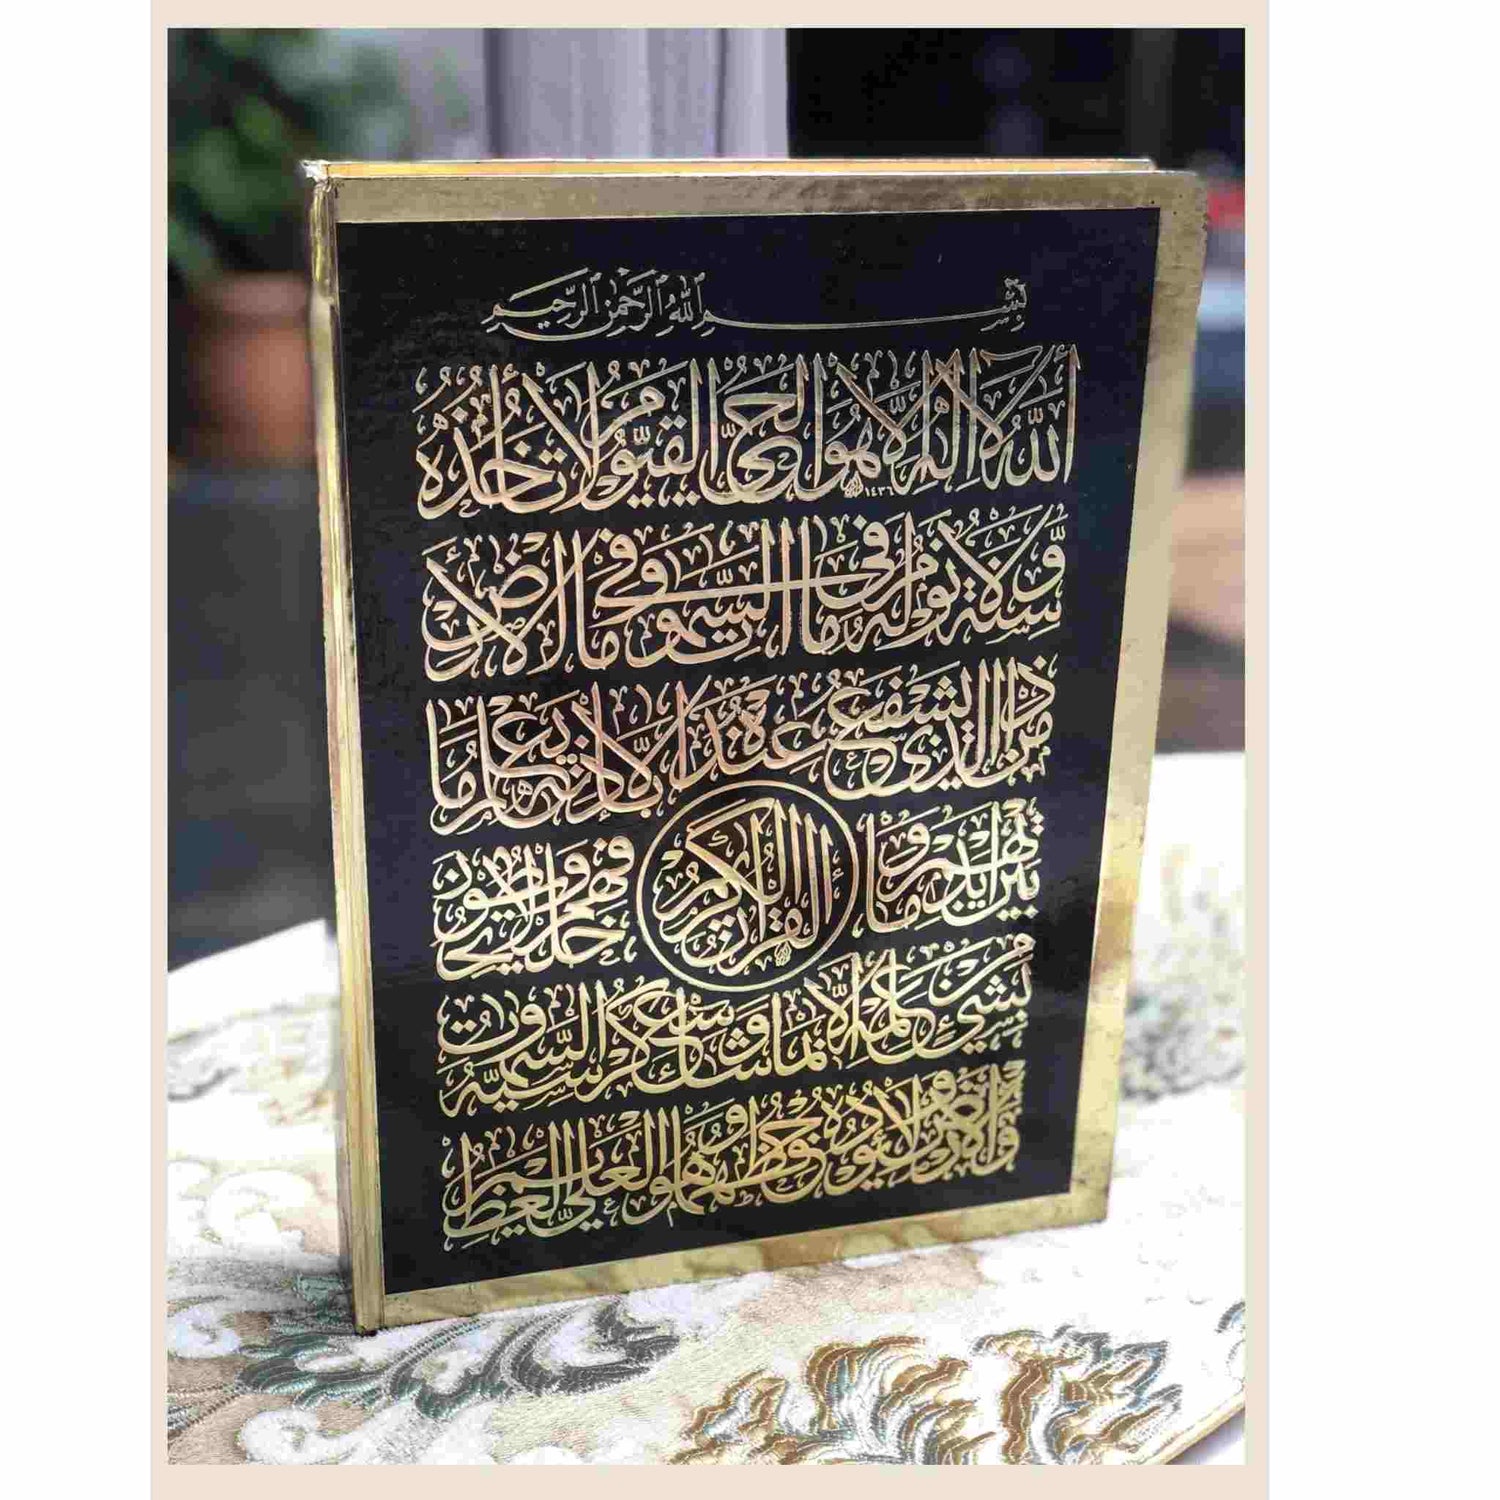 بِسْمِ ٱللَّهِ ٱلرَّحْمَٰنِ ٱلرَّحِيمِ
اللَّهُ لَا إِلَٰهَ إِلَّا هُوَ الْحَيُّ الْقَيُّومُ لَا تَأْخُذُهُ
سِنَةٌ وَلَا نَوْمٌ لَهُ مَا فِي السَّمَٰوَٰتِ وَمَا فِي الْأَرْضِ
مَنْ ذَا الَّذِي يَشْفَعُ عِنْدَهُ إِلَّا بِإِذْنِهِ يَعْلَمُ مَا
بَيْنَ أَيْدِيهِمْ وَمَا خَلْفَهُمْ وَلَا يُحِيطُونَ
القرآن الكريم
بِشَيْءٍ مِنْ عِلْمِهِ إِلَّا بِمَا شَاءَ وَسِعَ كُرْسِيُّهُ السَّمَٰوَٰتِ
وَالْأَرْضَ وَلَا يَئُودُهُ حِفْظُهُمَا وَهُوَ الْعَلِيُّ الْعَظِيمُ
١٤٣٦